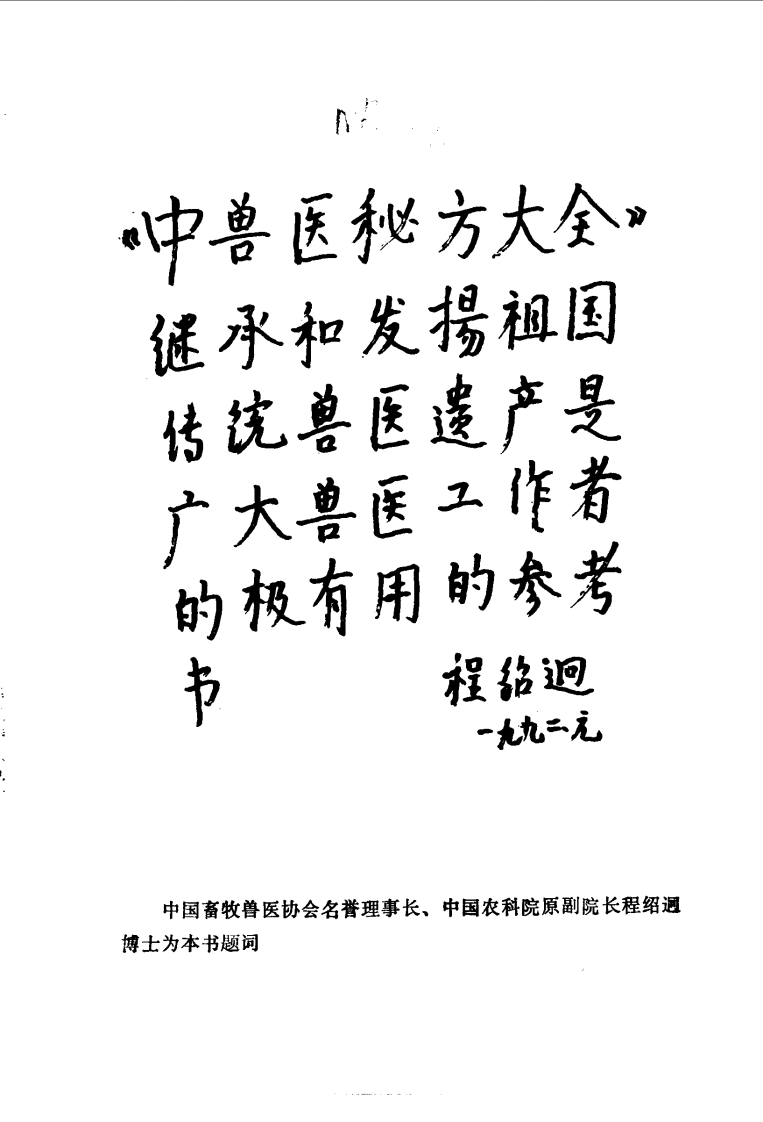 《中兽医秘方大全》
继承和发揚祖国
传统兽医遗产是
广大兽医工作者
的极有用的参考
书
程绍迥
一九九二元
中国畜牧兽医协会名誉理事长、中国农科院原副院长程绍迥
博士为本书题词